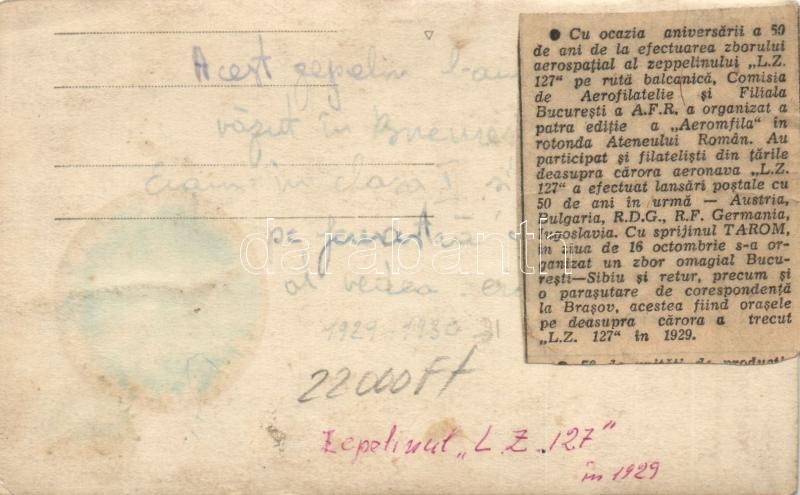 Acest zepelin l-am
văzut în Bucure
Eram în clasa I și
pe fereast
al
1929-1930 31
22000 Ft
Zepelinul „L Z 127"
în 1929
● Cu ocazia aniversării a 50
de ani de la efectuarea zborului
aerospațial al zeppelinului „L.Z.
127“ pe rută balcanică, Comisia
de Aerofilatelie și Filiala
București a A.F.R. a organizat a
patra ediție a „Aeromfila“ in
rotonda Ateneului Român. Au
participat și filateliști din țările
deasupra cărora aeronava „L.Z.
127“ a efectuat lansări poștale cu
50 de ani în urmă — Austria,
Bulgaria, R.D.G., R.F. Germania,
Iugoslavia. Cu sprijinul TAROM,
in ziua de 16 octombrie s-a or-
ganizat un zbor omagial Bucu-
rești—Sibiu și retur, precum și
o parașutare de corespondență
la Brașov, acestea fiind orașele
pe deasupra cărora a trecut
„L.Z. 127“ in 1929.
darabanth